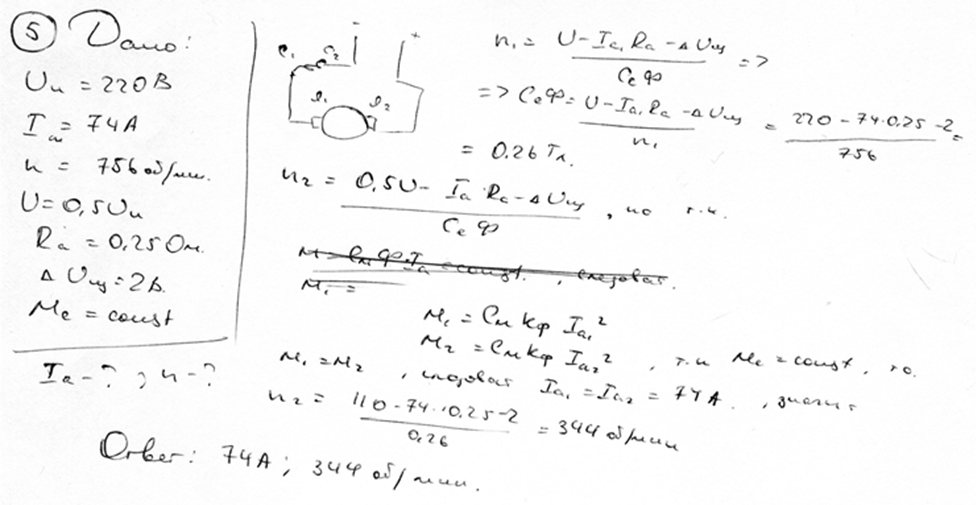 5 Дано:
Uн = 220 В
Iа = 74 А
n = 756 об/мин.
U = 0,5Uн
Rа = 0,25 Ом.
ΔUщ = 2 В.
Mс = const
Iа - ? , n - ?
- +
С₁ С₂
Я₁ Я₂
n₁ = (U - Iа₁ Rа - ΔUщ) / (Cе Ф) =>
=> CеФ = (U - Iа₁ Rа - ΔUщ) / n₁ = (220 - 74·0,25 - 2) / 756 =
= 0,26 Тл.
n₂ = (0,5U - Iа Rа - ΔUщ) / (Cе Ф) , но т.к.
M₁ =
M₁ = Cм kф Iа₁²
M₂ = Cм kф Iа₂² , т.к Mс = const, то.
M₁ = M₂ , следоват Iа₁ = Iа₂ = 74 А. , значит
n₂ = (110 - 74·0,25 - 2) / 0,26 = 344 об/мин
Ответ: 74 А; 344 об/мин.